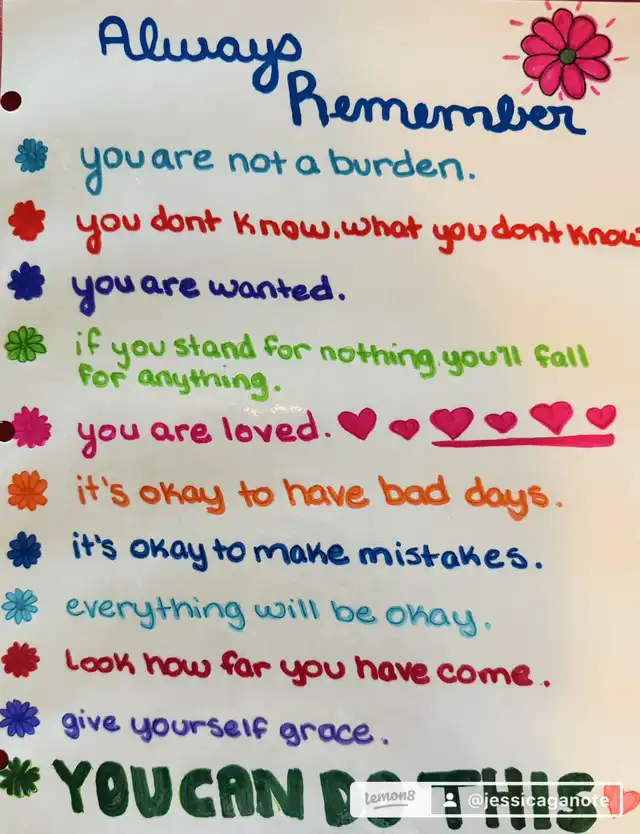 Always
Remember
you are not a burden.
you dont know, what you dont know
you are wanted.
if you stand for nothing, you'll fall
for anything.
you are loved.
it's okay to have bad days.
it's okay to make mistakes.
everything will be okay.
Look how far you have come.
give yourself grace.
YOU CAN DO THIS
lemon8 @jessicaganote